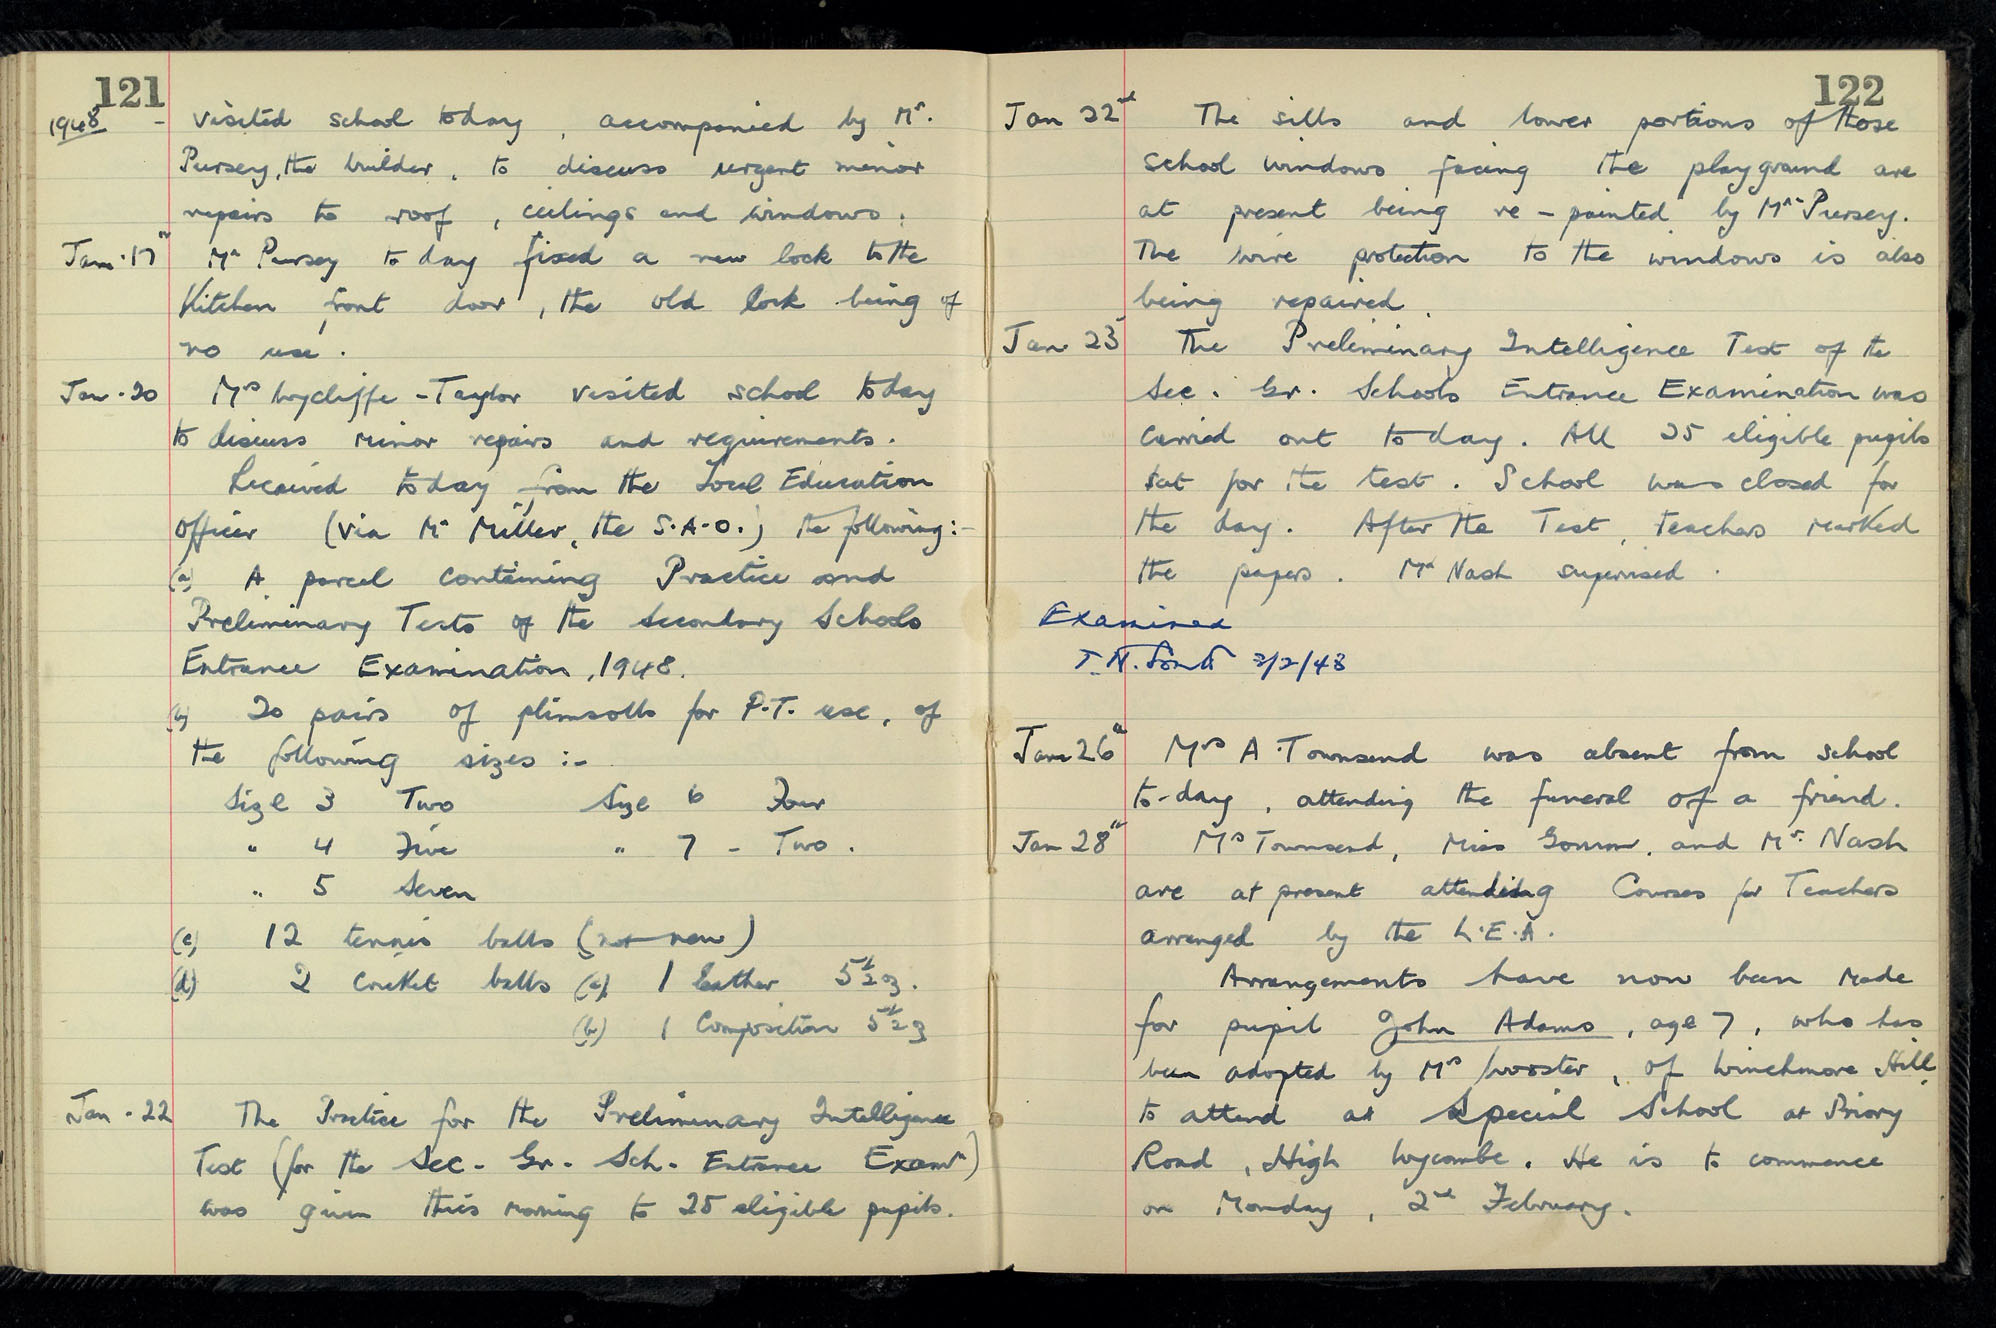 121
1948 - visited school today, accompanied by Mr.
Pursey, the builder, to discuss urgent minor
repairs to roof, ceilings and windows.
Jan. 17th Mr Pursey to day fixed a new lock to the
Kitchen front door, the old lock being of
no use.
Jan. 20 Mrs Wycliffe-Taylor visited school today
to discuss minor repairs and requirements.
Received today from the Local Education
Officer (via Mr Miller, the S.A.O.) the following:-
(a) A parcel containing Practice and
Preliminary Tests of the Secondary Schools
Entrance Examination, 1948.
(b) 20 pairs of plimsolls for P.T. use, of
the following sizes :-
Size 3 Two Size 6 Four
" 4 Five " 7 - Two.
" 5 Seven
(c) 12 tennis balls (not new)
(d) 2 Cricket balls (a) 1 leather 5½ oz.
(b) 1 Composition 5½ oz
Jan. 22 The Practice for the Preliminary Intelligence
Test (for the Sec. Gr. Sch. Entrance Examn)
was given this morning to 25 eligible pupils.
122
Jan 22nd The sills and lower portions of those
school windows facing the playground are
at present being re-painted by Mr. Pursey.
The wire protection to the windows is also
being repaired.
Jan 23 The Preliminary Intelligence Test of the
Sec. Gr. Schools Entrance Examination was
carried out to day. All 25 eligible pupils
sat for the test. School was closed for
the day. After the Test, teachers marked
the papers. Mr Nash supervised.
Examined
T. N. 2/2/48
Jan 26th Mrs A. Townsend was absent from school
to-day, attending the funeral of a friend.
Jan 28th Mrs Townsend, Miss Gomm, and Mr. Nash
are at present attending Courses for Teachers
arranged by the L.E.A.
Arrangements have now been made
for pupil John Adams, age 7, who has
been adopted by Mrs Wooster, of Winchmore Hill,
to attend at Special School at Priory
Road, High Wycombe. He is to commence
on Monday, 2nd February.